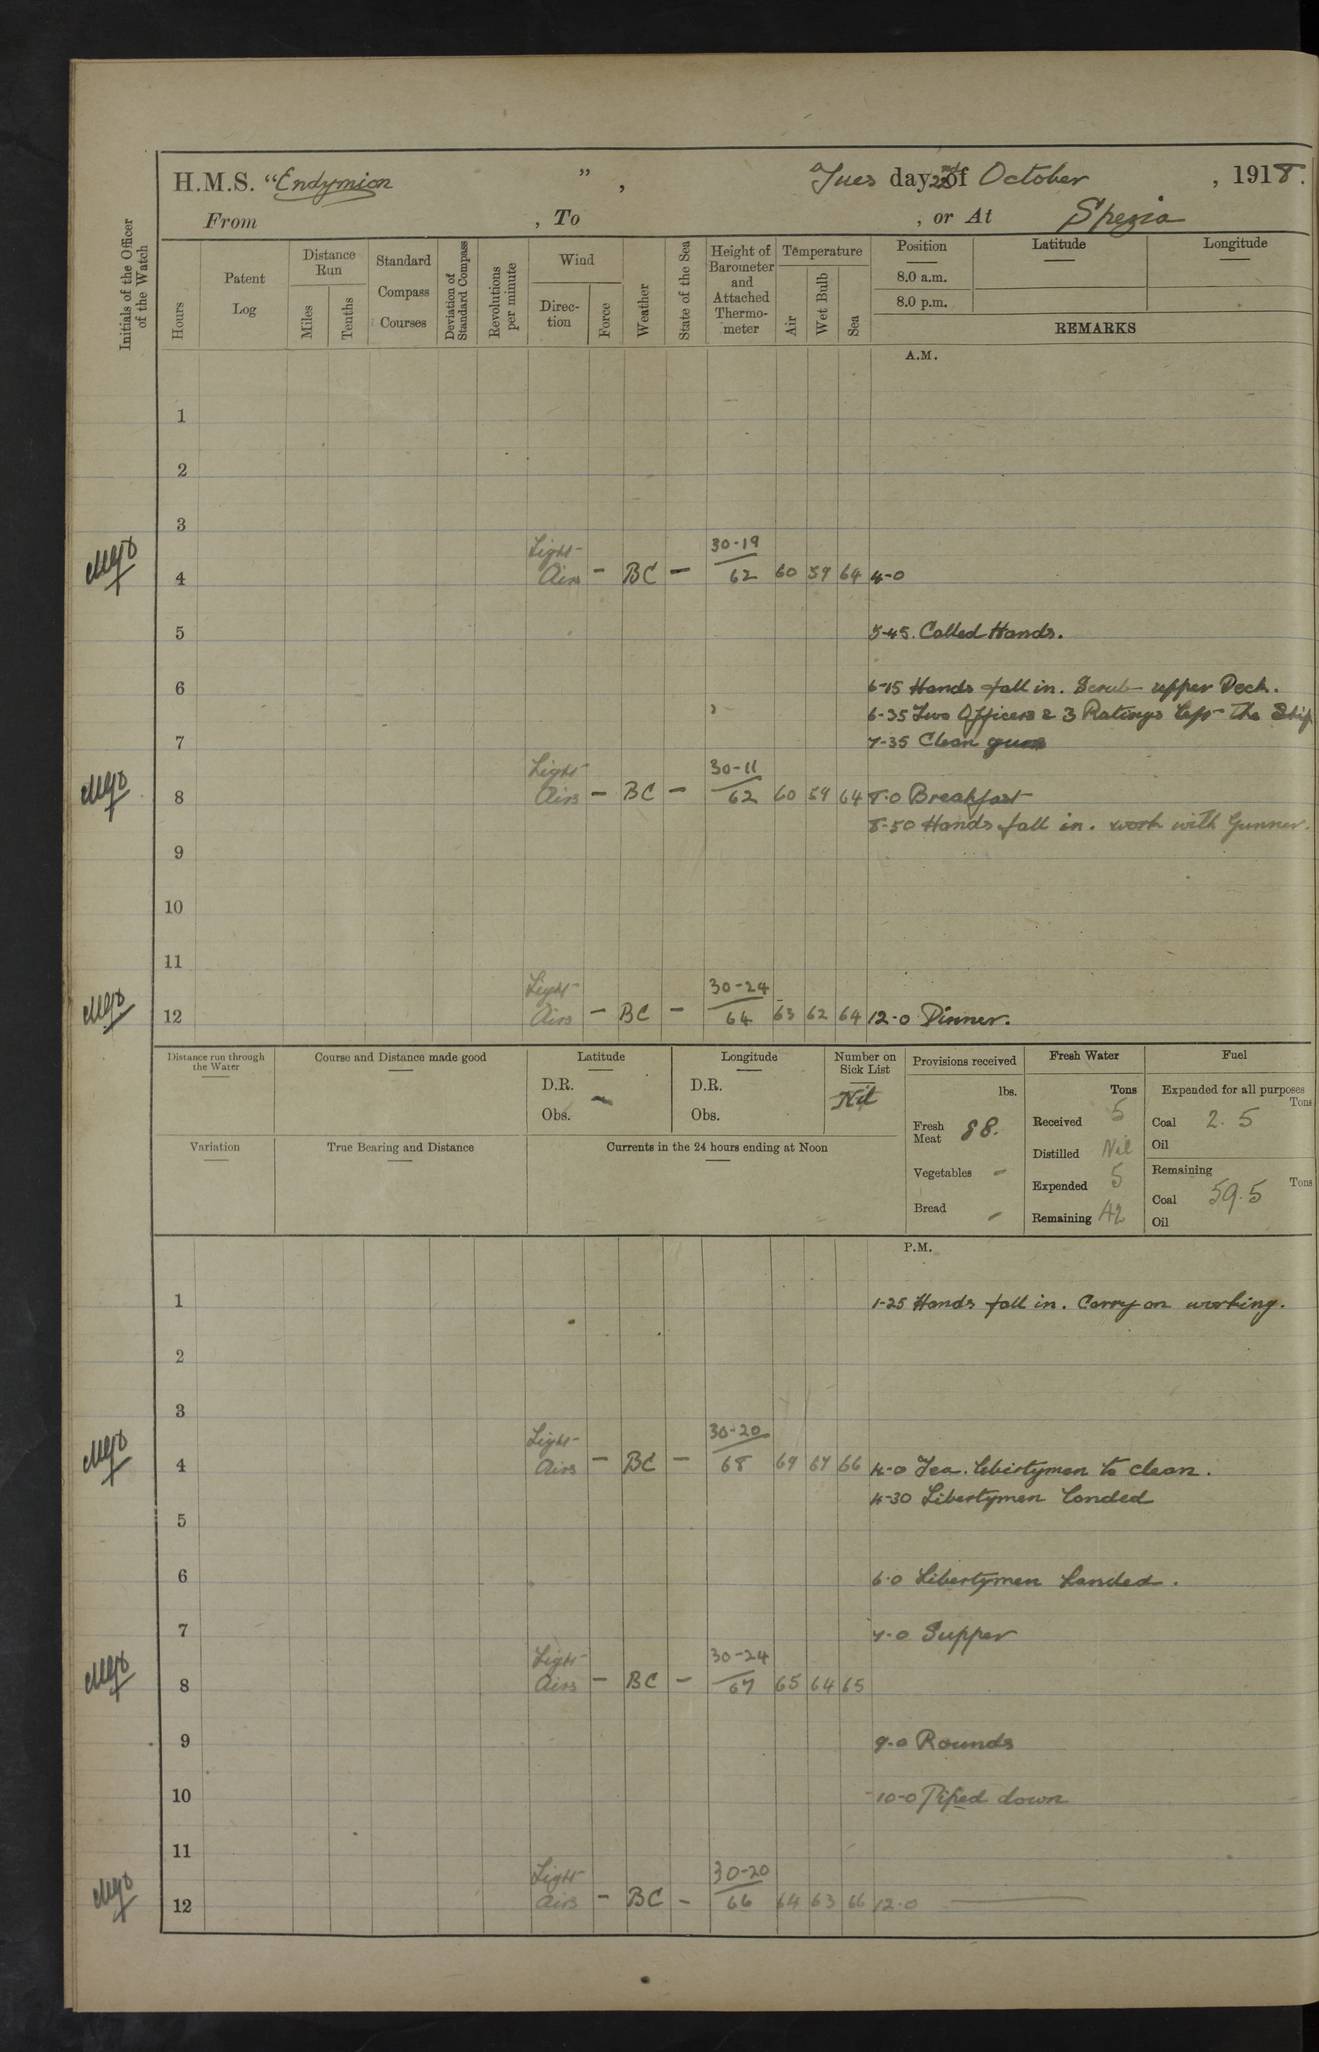 H.M.S. "Endymion ", Tues day 22nd of October , 1918.
From , To , or At Spezia
Initials of the Officer of the Watch
Hours
Patent Log
Distance Run
Miles
Tenths
Standard Compass Courses
Deviation of Standard Compass
Revolutions per minute
Wind
Direc-tion
Force
Weather
State of the Sea
Height of Barometer and Attached Thermo-meter
Temperature
Air
Wet Bulb
Sea
Position
8.0 a.m.
8.0 p.m.
Latitude
Longitude
REMARKS
A.M.
1
2
3
Light 30-19
4 Airs - BC - 62 60 59 64 4-0
5 5-45. Called Hands.
6 6-15 Hands fall in. Scrub upper Deck.
6-35 Two Officers & 3 Ratings left the Ship
7 7-35 Clean guns
Light 30-11
8 Airs - BC - 62 60 59 64 8.0 Breakfast
8-50 Hands fall in. work with Gunner.
9
10
11
Light 30-24
12 Airs - BC - 64 63 62 64 12-0 Dinner.
Distance run through the Water
Course and Distance made good
Latitude
D.R.
Obs.
Longitude
D.R.
Obs.
Number on Sick List
Nil
Provisions received
lbs.
Fresh Meat 88.
Vegetables -
Bread -
Fresh Water
Tons
Received 5
Distilled Nil
Expended 5
Remaining 42
Fuel
Expended for all purposes
Tons
Coal 2.5
Oil
Remaining
Tons
Coal 59.5
Oil
Variation
True Bearing and Distance
Currents in the 24 hours ending at Noon
P.M.
1 1-25 Hands fall in. Carry on working.
2
3
Light 30-20
4 Airs - BC - 68 69 67 66 4-0 Tea. Libertymen to clean.
4-30 Libertymen landed
5
6 6.0 Libertymen Landed.
7 7-0 Supper
Light 30-24
8 Airs - BC - 67 65 64 65
9 9-0 Rounds
10 10-0 Piped down
11
Light 30-20
12 Airs - BC - 66 64 63 66 12.0